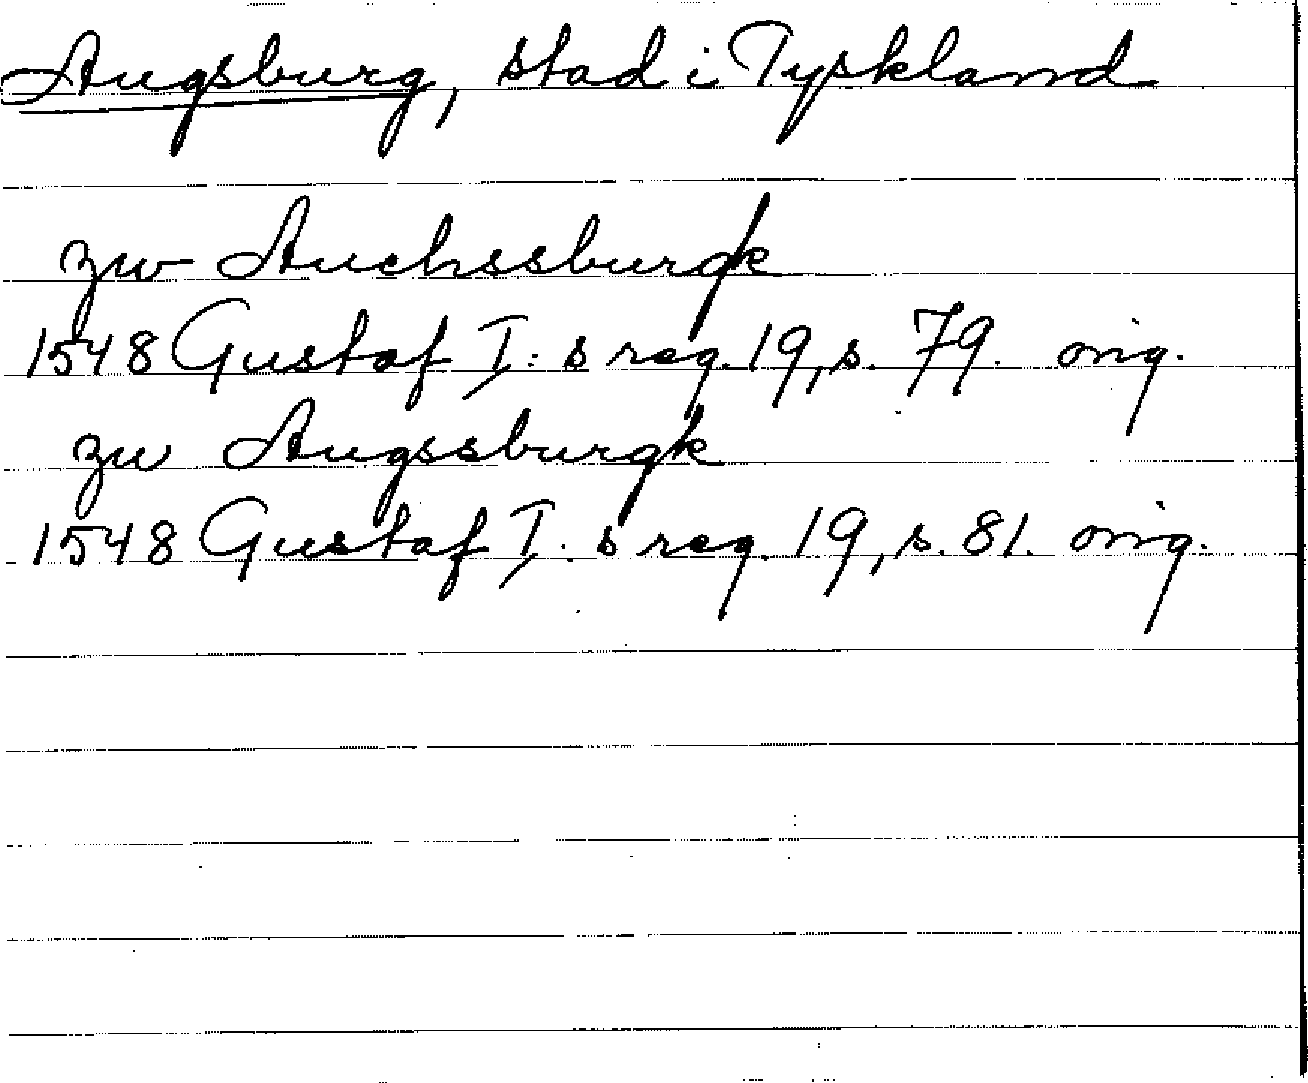 Augsburg, stad i Tyskland
zw Auchssburgk
1548 Gustaf I:s reg. 19, s. 79. orig.
zw Augssburgk
1548 Gustaf I.s reg. 19, s. 81. orig.